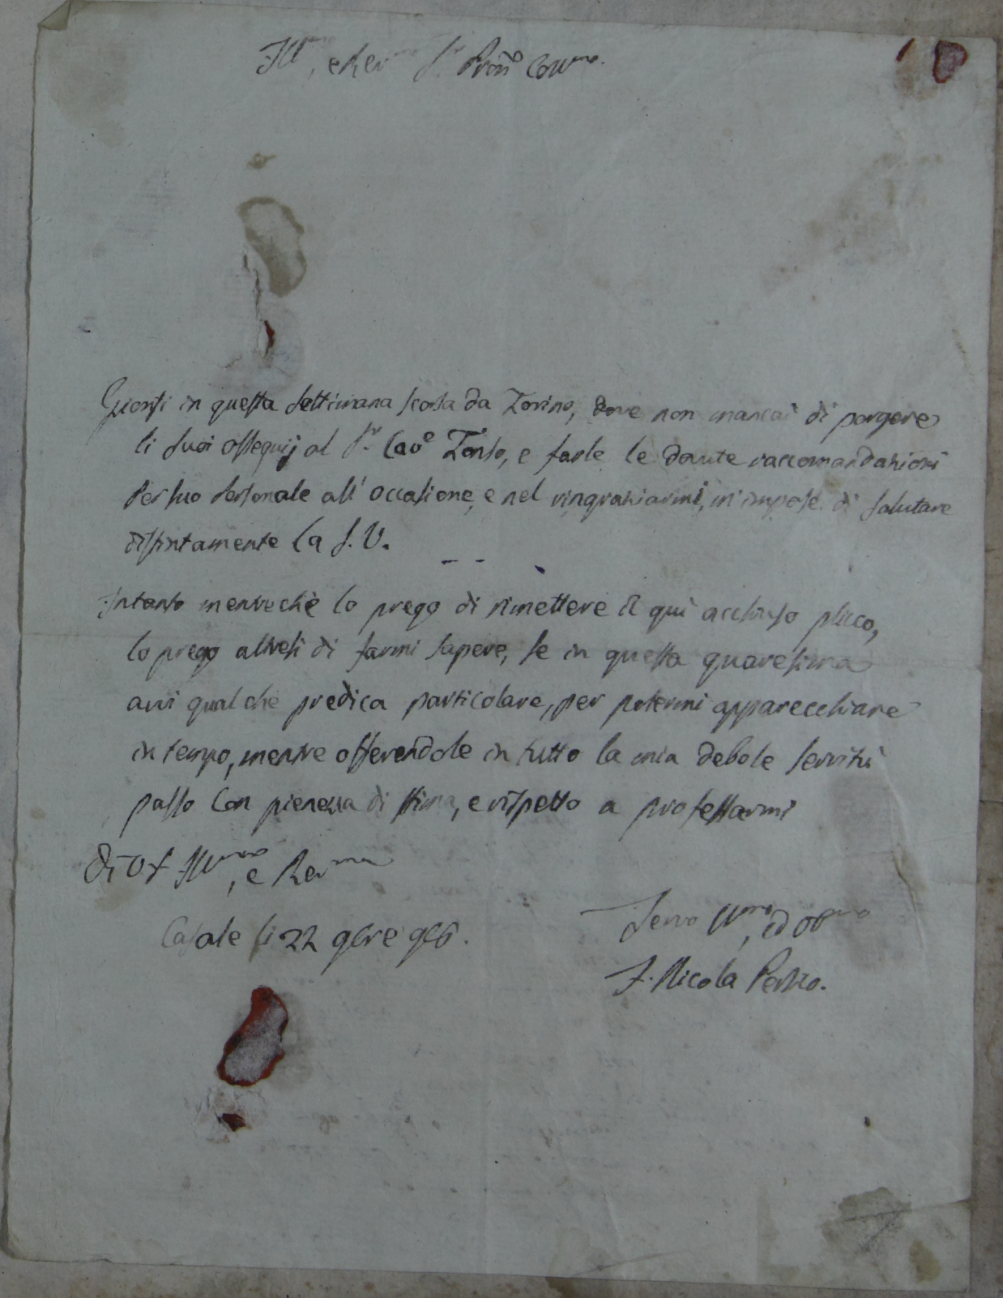 Ill.mo, e Rev.mo Sr. Pron. Col.mo
Gionsi in questa settimana scorsa da Torino, dove non mancai di porgere
li suoi ossequij al Sr. Cavo., e farle le dovute raccomandationi
per suo personale all'occasione, e nel ringratiarmi, m'impose di salutare
distintamente la S. V.
Intanto mentrechè lo prego di rimettere il qui accluso plicco,
lo prego altresì di farmi sapere, se in questa quaresima
avvi qualche predica particolare, per potermi apparecchiare
in tempo, mentre offerendole in tutto la mia debole servitù
passo con pienezza di stima, e rispetto a protestarmi
Di V. S. Ill.ma, e Rev.ma
Casale li 22 9bre
Servo U.mo, ed Ob.mo
F. Nicola